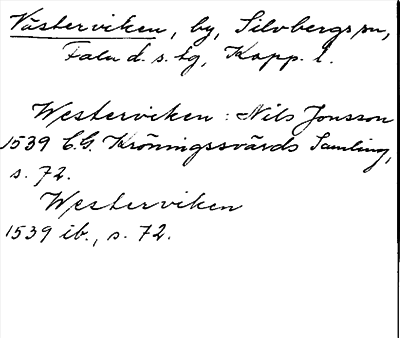 Västerviken, by, Silvbergs sn,
Falu d. s. tg, Kopp. l.
Westerviken: Nils Jonsson
1539 C.G. Kröningssvärds Samling,
s. 72.
Westerviken
1539 ib., s. 72.